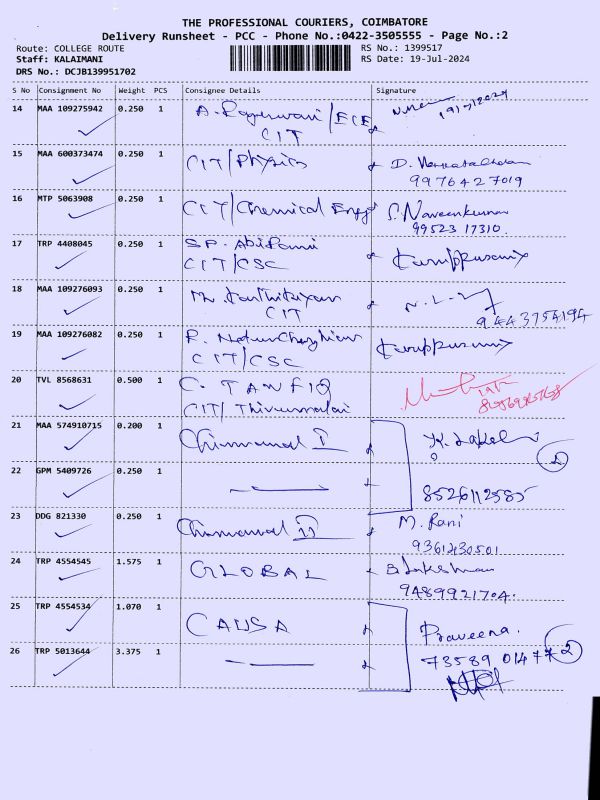 THE PROFESSIONAL COURIERS, COIMBATORE
Delivery Runsheet - PCC - Phone No.:0422-3505555 - Page No.:2
Route: COLLEGE ROUTE
RS No.: 1399517
Staff: KALAIMANI
RS Date: 19-Jul-2024
DRS No.: DCJB139951702
S No Consignment No Weight PCS Consignee Details Signature
14 MAA 109275942 0.250 1 /ECE
CIT
15 MAA 600373474 0.250 1 CIT/Physics D.
9976427019
16 MTP 5063908 0.250 1 CIT/Chemical Engg S. Naveenkumar
99523 17310.
17 TRP 4408045 0.250 1 SP. Abirami Karuppusamy
CIT/CSC
18 MAA 109276093 0.250 1 M. Karthikeyan
CIT 9443754194
19 MAA 109276082 0.250 1 R. Karuppusamy
CIT/CSC
20 TVL 8568631 0.500 1 C. TANFIQ
CIT/Thirumalai
21 MAA 574910715 0.200 1 Chinnamal I
22 GPM 5409726 0.250 1 8526112585
23 DDG 821330 0.250 1 Chinnamal II M. Rani
9361430501
24 TRP 4554545 1.575 1 GLOBAL Lakshman
9489921704.
25 TRP 4554534 1.070 1 CAUSA Praveena.
26 TRP 5013644 3.375 1 73589 01477 2